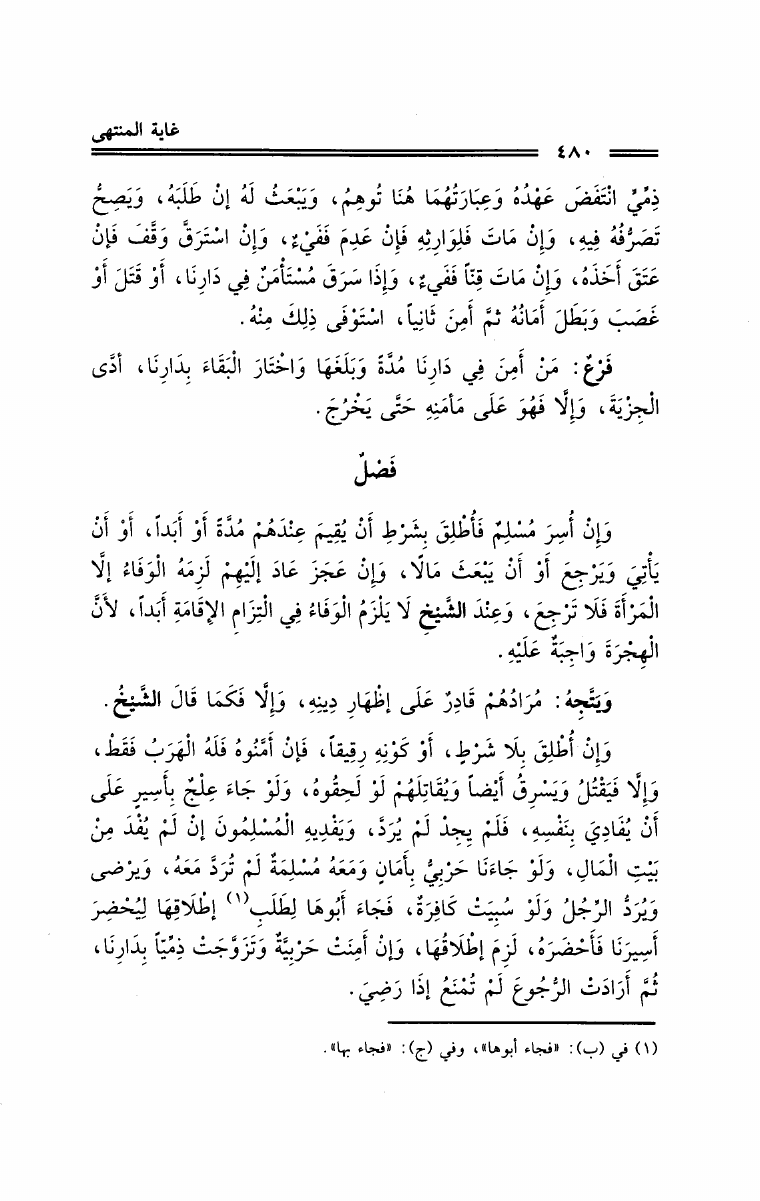 غاية المنتهى
٤٨٠
ذِمِّيٌّ انْتَقَضَ عَهْدُهُ وَعِبَارَتُهُمَا هُنَا تُوهِمُ، وَيَبْعَثُ لَهُ إنْ طَلَبَهُ، وَيَصِحُّ
تَصَرُّفُهُ فِيهِ، وَإِنْ مَاتَ فَلِوَارِثِهِ فَإِنْ عَدِمَ فَفَيْءٌ، وَإِنْ اسْتَرَقَّ وَقَّفَ فَإِنْ
عَتَقَ أَخَذَهُ، وَإِنْ مَاتَ قِنّاً فَفَيءٌ، وَإِذَا سَرَقَ مُسْتَأْمَنٌ فِي دَارِنَا، أَوْ قَتَلَ أَوْ
غَصَبَ وَبَطَلَ أَمَانُهُ ثمَّ أَمِنَ ثَانِياً، اسْتَوْفَى ذِلِكَ مِنْهُ.
فَرْعٌ: مَنْ أَمِنَ فِي دَارِنَا مُدَّةً وَبَلَغَهَا وَاخْتَارَ الْبَقَاءَ بِدَارِنَا، أدَّى
الْجِزْيَةَ، وَإِلَّا فَهُوَ عَلَى مَأمَنِهِ حَتَّى يَخْرُجَ.
فَصْلٌ
وَإِنْ أُسِرَ مُسْلِمٌ فَأُطْلِقَ بِشَرْطِ أَنْ يُقِيمَ عِنْدَهُمْ مُدَّةً أَوْ أَبَداً، أَوْ أَنْ
يَأْتِيَ وَيَرْجِعَ أَوْ أَنْ يَبْعَثَ مَالًا، وَإِنْ عَجَزَ عَادَ إلَيْهِمْ لَزِمَهُ الْوَفَاءُ إلَّا
الْمَرْأَةَ فَلَا تَرْجِعَ، وَعِنْدَ الشَّيْخِ لَا يَلْزَمُ الْوَفَاءُ فِي الْتِزَامِ الإِقَامَةِ أَبَداً، لأَنَّ
الْهِجْرَةَ وَاجِبَةٌ عَلَيْهِ.
وَيَتَّجِهُ: مُرَادُهُمْ قَادِرٌ عَلَى إظْهَارِ دِينِهِ، وَإِلَّا فَكَمَا قَالَ الشَّيْخُ.
وَإِنْ أُطْلِقَ بِلَا شَرْطٍ، أَوْ كَوْنِهِ رِقِيقاً، فَإِنْ أمَّنُوهُ فَلَهُ الْهَرَبُ فَقَطْ،
وَإِلَّا فَيَقْتُلُ وَيَسْرِقُ أَيْضاً وَيُقَاتِلَهُمْ لَوْ لَحِقُوهُ، وَلَوْ جَاءَ عِلْجٌ بِأَسِيرٍ عَلَى
أَنْ يُفَادِيَ بِنَفْسِهِ، فَلَمْ يَجِدْ لَمْ يُرَدَّ، وَيَفْدِيهِ الْمُسْلِمُونَ إنْ لَمْ يُفْدَ مِنْ
بَيْتِ الْمَالِ، وَلَوْ جَاءَنَا حَرْبِيُّ بِأَمَانٍ وَمَعَهُ مُسْلِمَةٌ لَمْ تُرَدَّ مَعَهُ، وَيرْضى
وَيُرَدُّ الرِّجُلُ وَلَوْ سُبِيَتْ كَافِرَةٌ، فَجَاءَ أَبُوهَا لِطَلَبِ(١) إطْلَاقِهَا لِيُحْضِرَ
أَسِيرَنَا فَأَحْضَرَهُ، لَزِمَ إطْلَاقُهَا، وَإِنْ أَمِنَتْ حَرْبِيَّةٌ وَتَزَوَّجَتْ ذِمِّيّاً بِدَارِنَا،
ثُمَّ أَرَادَتْ الرُّجُوعَ لَمْ تُمْنَعُ إذَا رَضِيَ.
(١) في (ب): «فجاء أبوها»، وفي (ج): «فجاء بها».